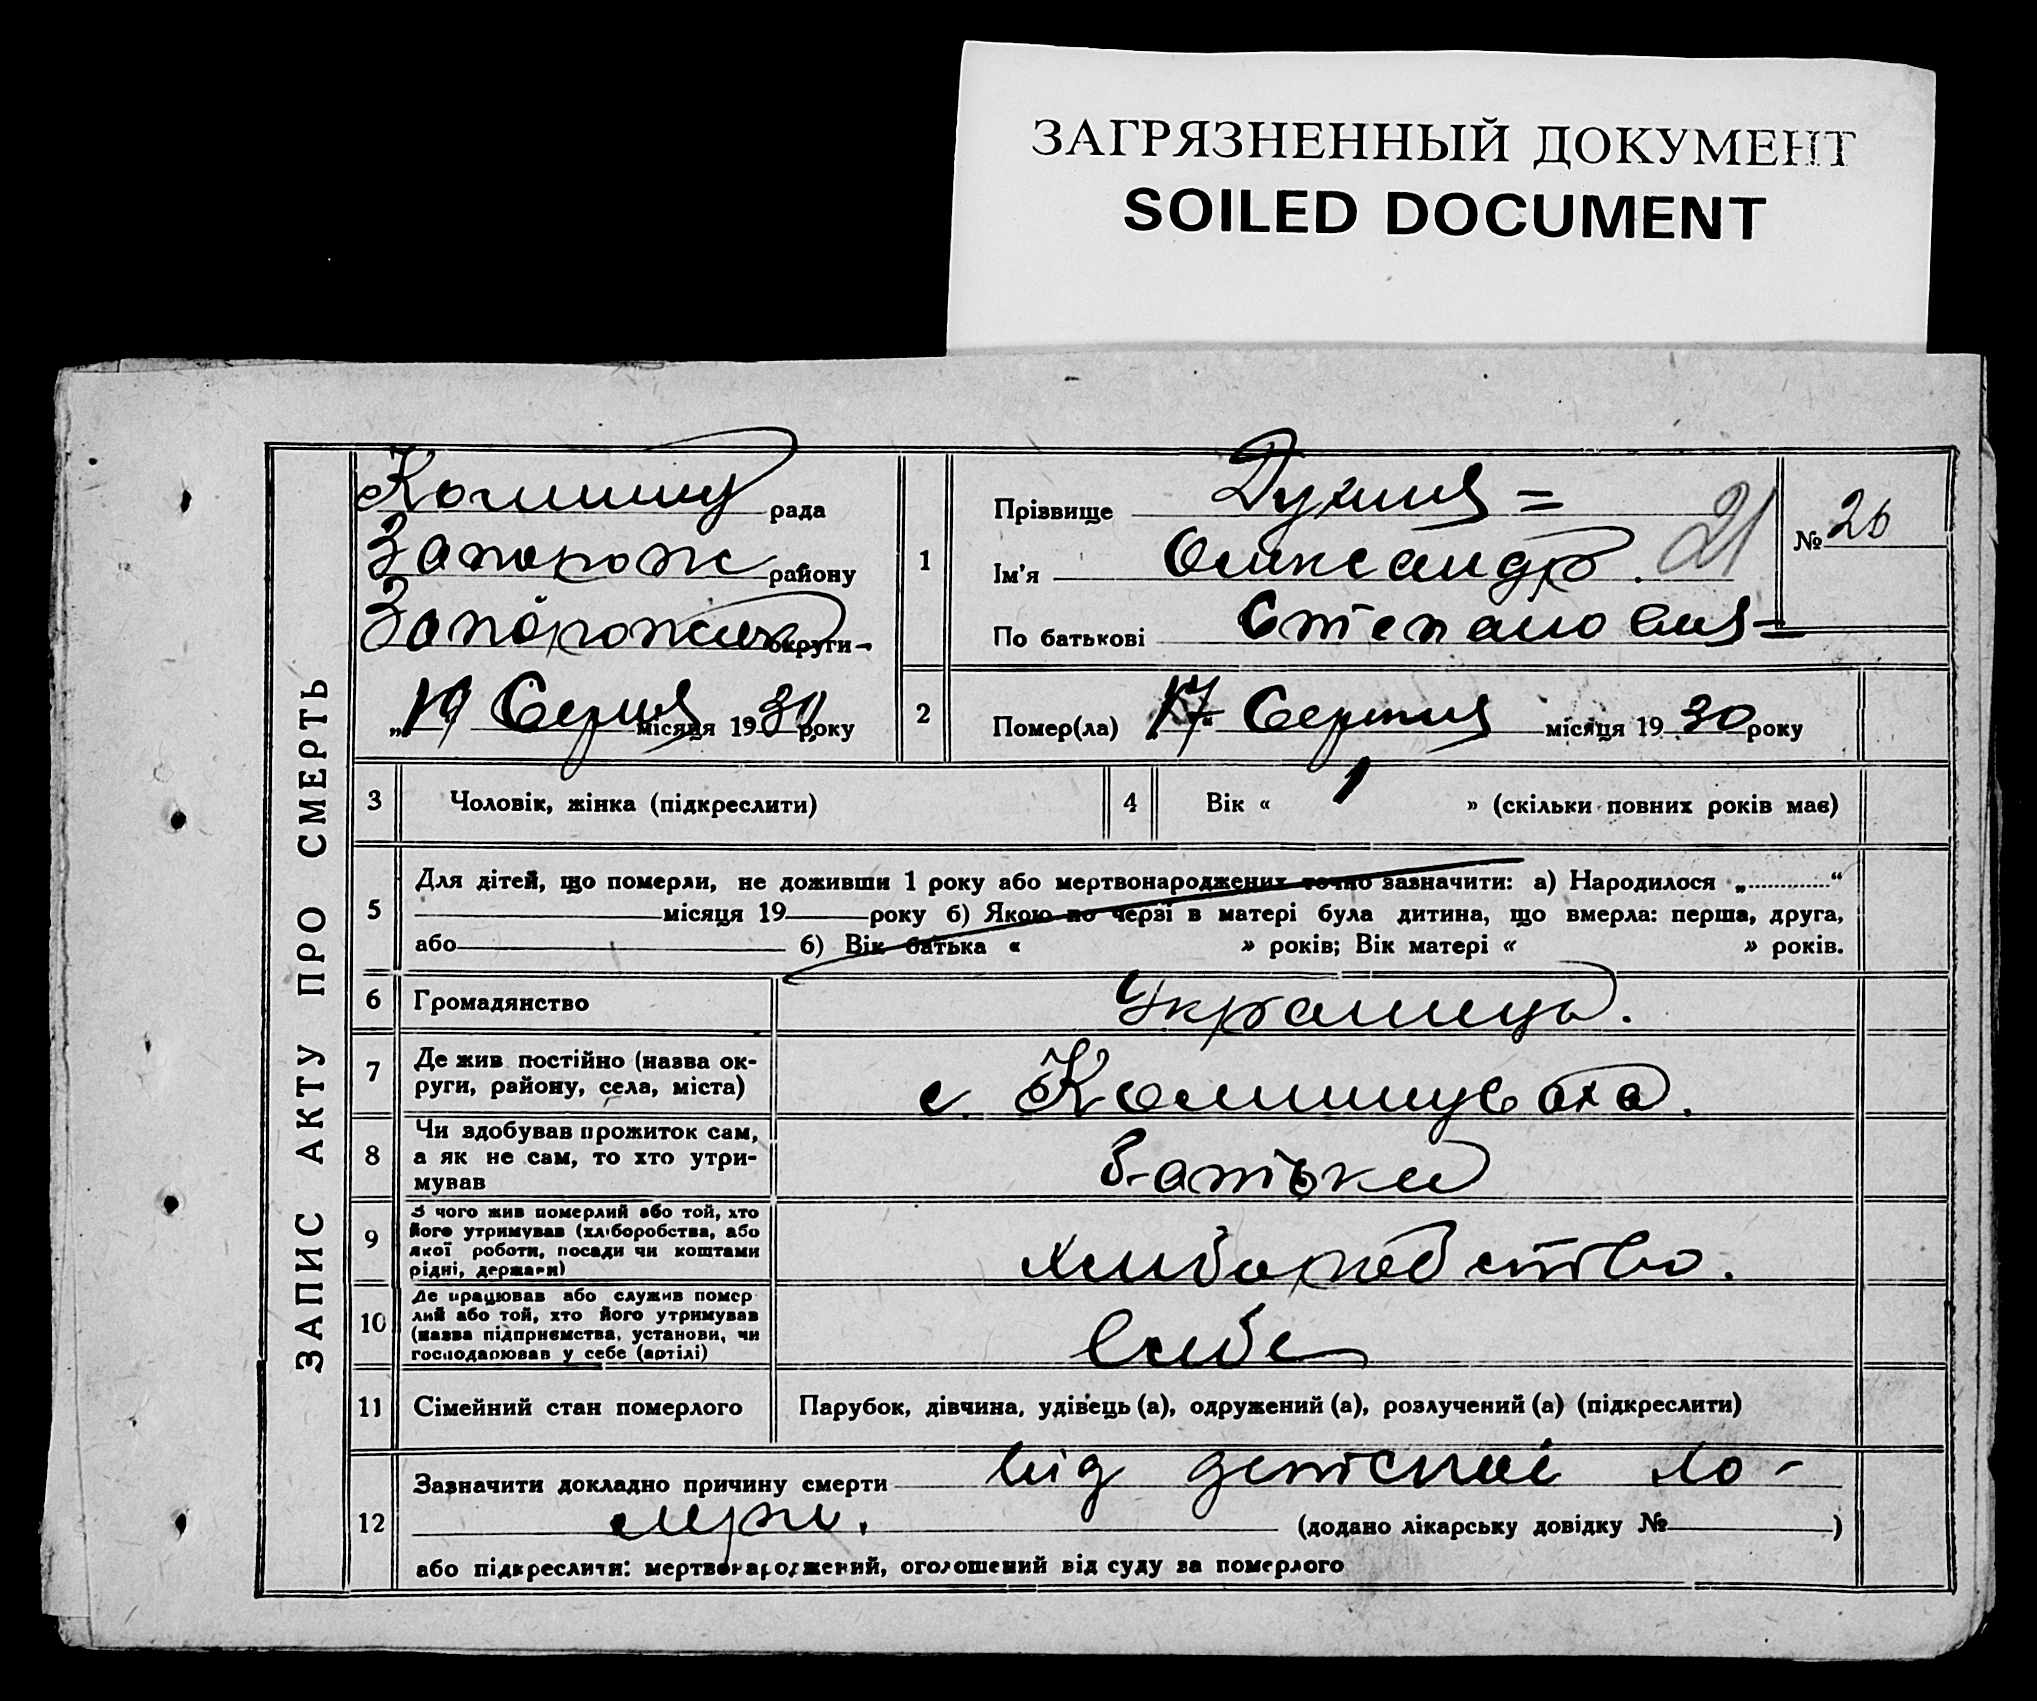 ЗАГРЯЗНЕННЫЙ ДОКУМЕНТ
SOILED DOCUMENT
ЗАПИС АКТУ ПРО СМЕРТЬ
рада
Запорож району
округи
„19 Серпня місяця 1930 року
1
Прізвище
Ім'я Олександр. 21
По батькові
№ 26
2
Помер(ла) 17 Серпня місяця 1930 року
3 Чоловік, жінка (підкреслити)
4 Вік « 1 » (скільки повних років має)
5
Для дітей, що померли, не доживши 1 року або мертвонароджених точно зазначити: а) Народилося „ “
місяця 19 року б) Якою по черзі в матері була дитина, що вмерла: перша, друга,
або б) Вік батька « » років; Вік матері « » років.
6 Громадянство Украинць.
7
Де жив постійно (назва ок-
руги, району, села, міста)
с. Комишуваха.
8
Чи здобував прожиток сам,
а як не сам, то хто утри-
мував
Батьки
9
З чого жив померлий або той, хто
його утримував (хліборобства, або
якої роботи, посади чи коштами
рідні, держави)
хлиборобство.
10
Де працював або служив помер
лий або той, хто його утримував
(назва підприємства, установи, чи
господарював у себе (артілі)
11 Сімейний стан померлого Парубок, дівчина, удівець (а), одружений (а), розлучений (а) (підкреслити)
12
Зазначити докладно причину смерти від детскиї хо-
лери. (додано лікарську довідку № )
або підкреслити: мертвонароджений, оголошений від суду за померлого